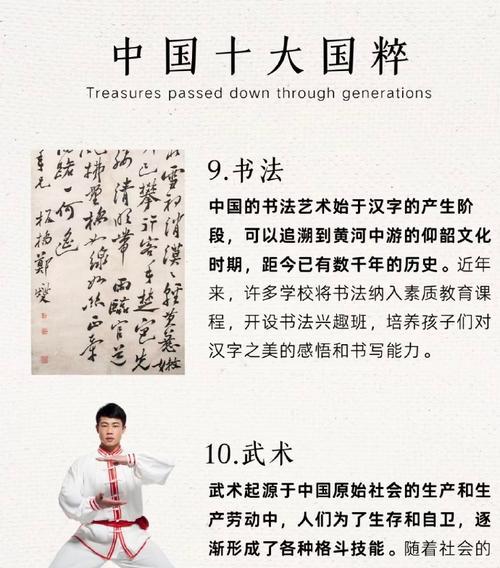 中国十大国粹
Treasures passed down through generations
9.书法
中国的书法艺术始于汉字的产生阶
段，可以追溯到黄河中游的仰韶文化
时期，距今已有数千年的历史。近年
来，许多学校将书法纳入素质教育课
程，开设书法兴趣班，培养孩子们对
汉字之美的感悟和书写能力。
板橋鄭燮
10.武术
武术起源于中国原始社会的生产和生
产劳动中，人们为了生存和自卫，逐
渐形成了各种格斗技能。随着社会的